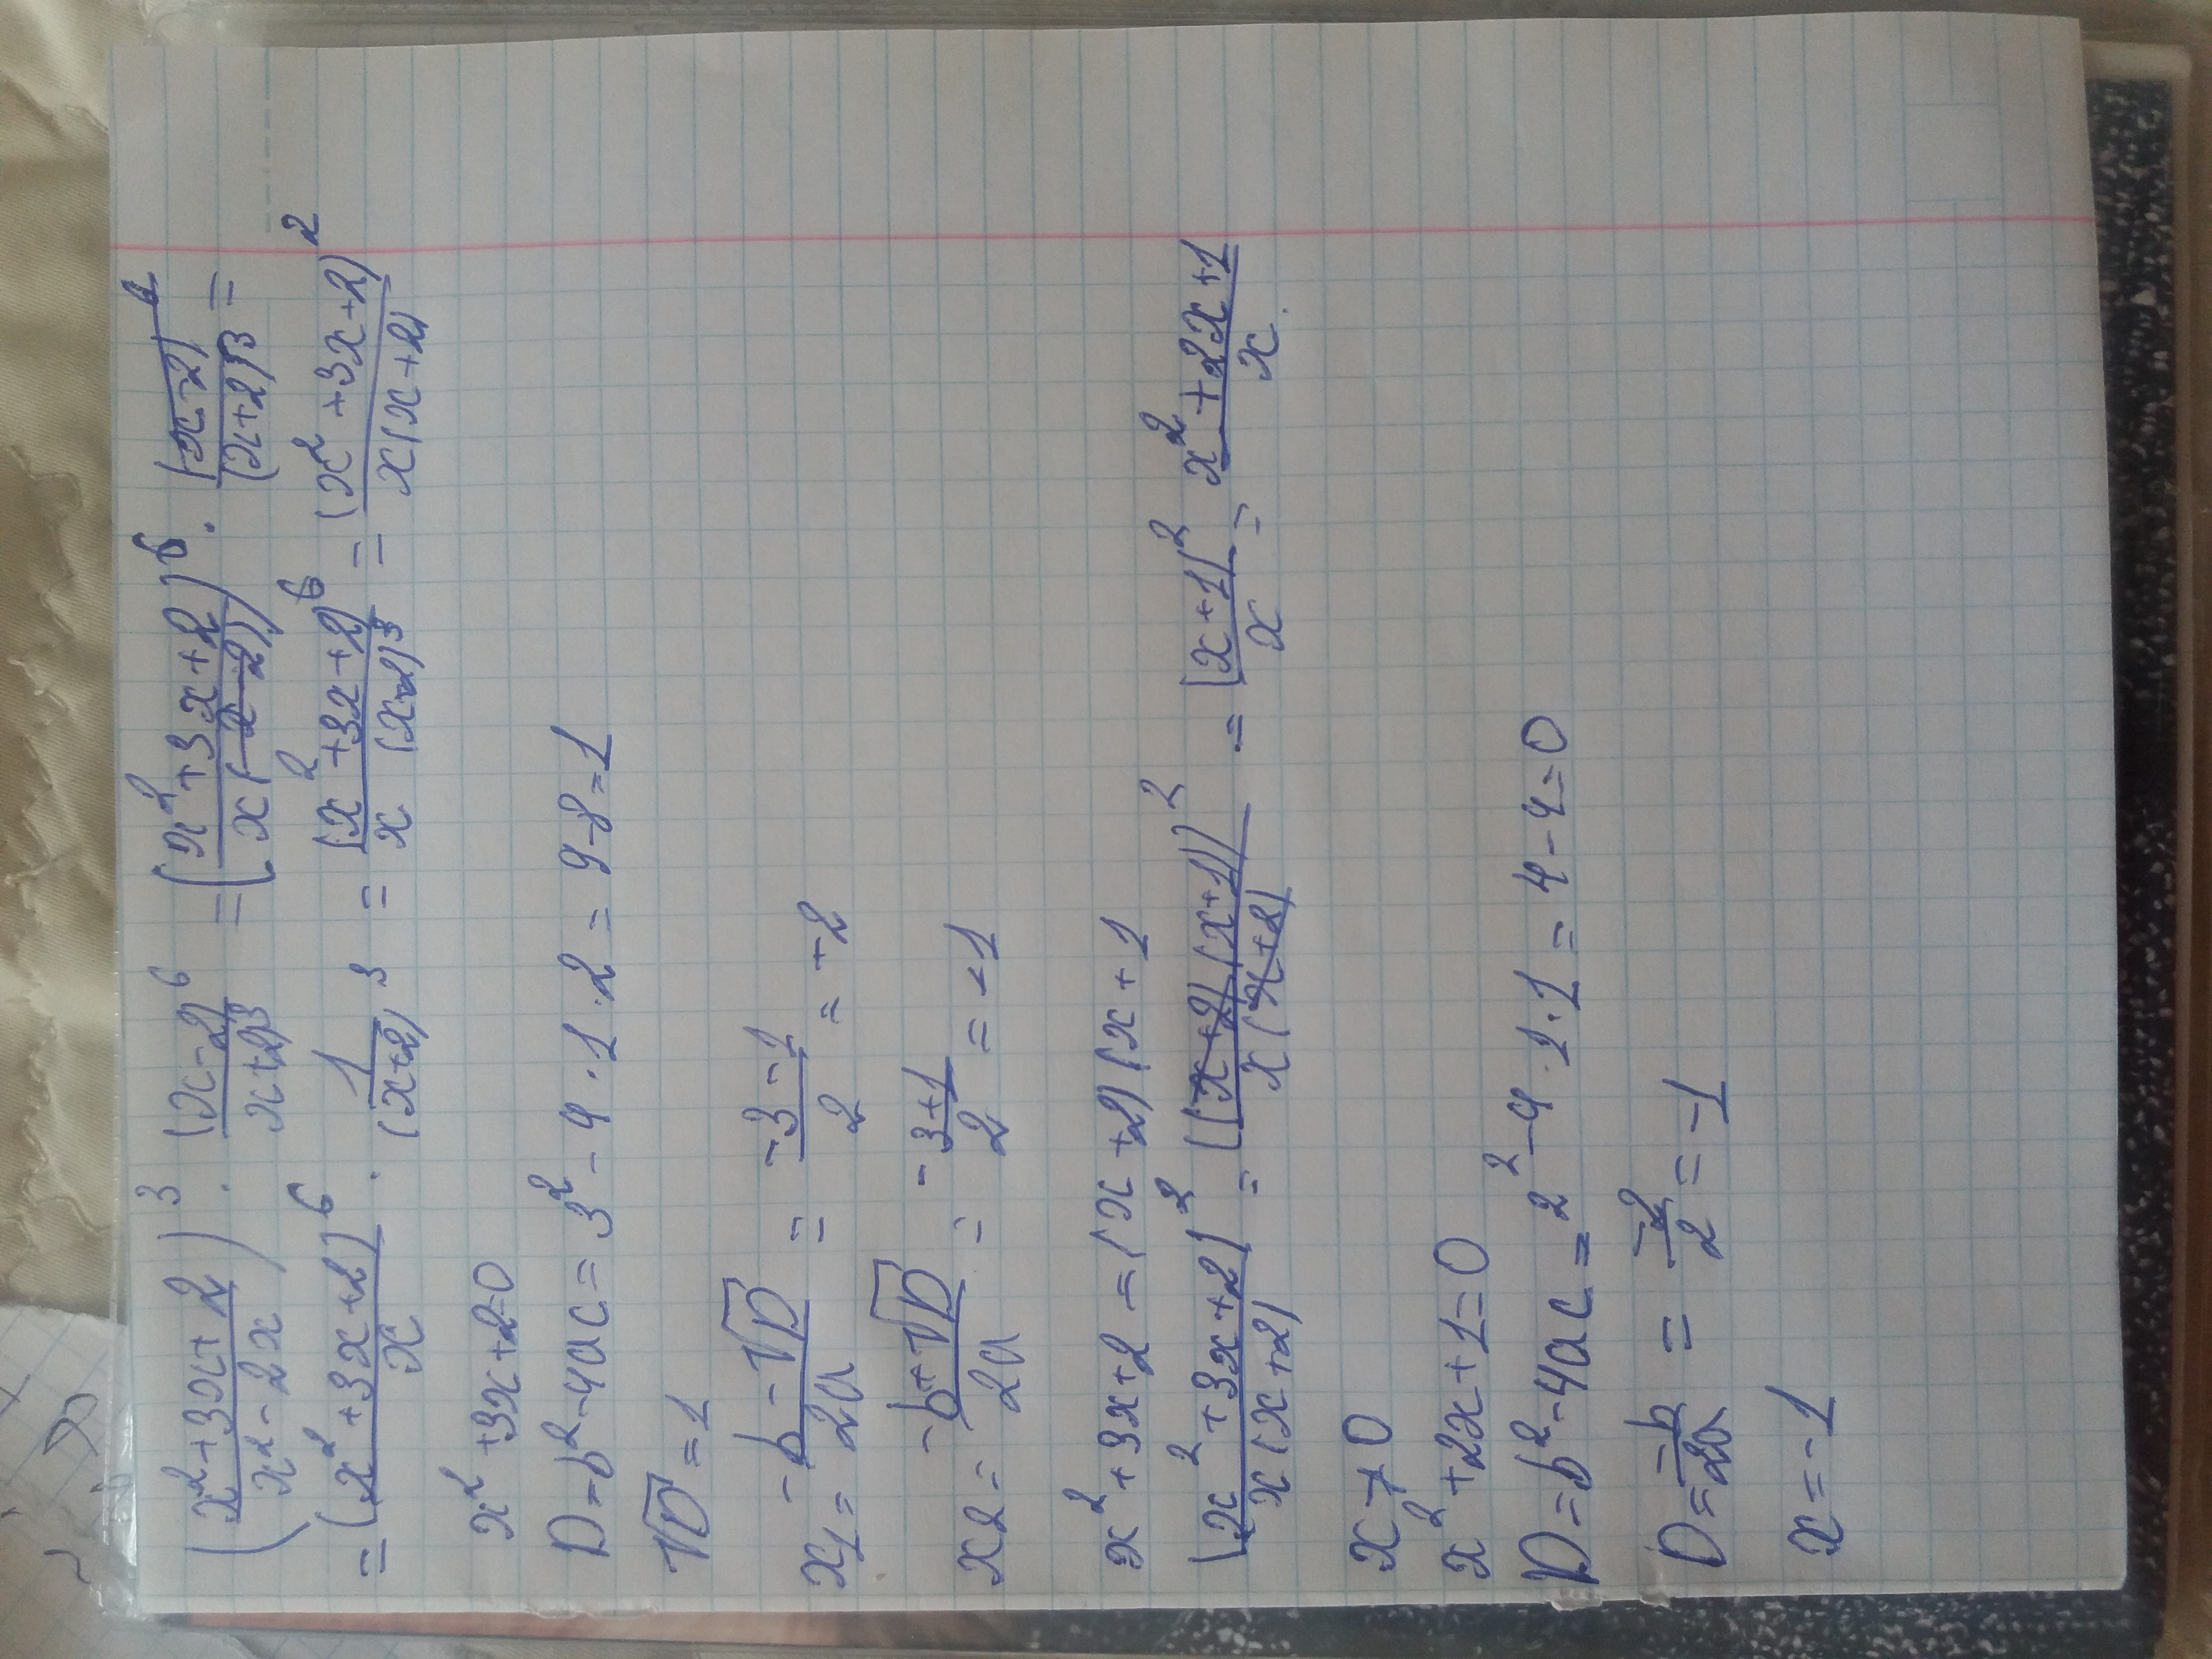 (x²+3x+2 / x²-2x)³ · (x-2)⁶ / x+2)³ = (x²+3x+2 / x(x-2))⁶ · (x-2)⁶ / (x+2)³ =
= (x²+3x+2)⁶ / x · 1 / (x+2)³ = (x²+3x+2)⁶ / x (x-2)³ = (x²+3x+2)² / x(x+2)
x²+3x+2=0
D=b²-4ac=3²-4·1·2=9-8=1
√D=1
x1= -b-√D / 2a = -3-1 / 2 = -2
x2= -b+√D / 2a = -3+1 / 2 = -1
x²+3x+2=(x+2)(x+1
(x²+3x+2)² / x(x+2) = ((x+2)(x+1))² / x(x+2) = (x+1)² / x = x²+2x+1 / x
x≠0
x²+2x+1=0
D=b²-4ac=2²-4·1·1=4-4=0
D= -b / 2a = -2 / 2 = -1
x=-1